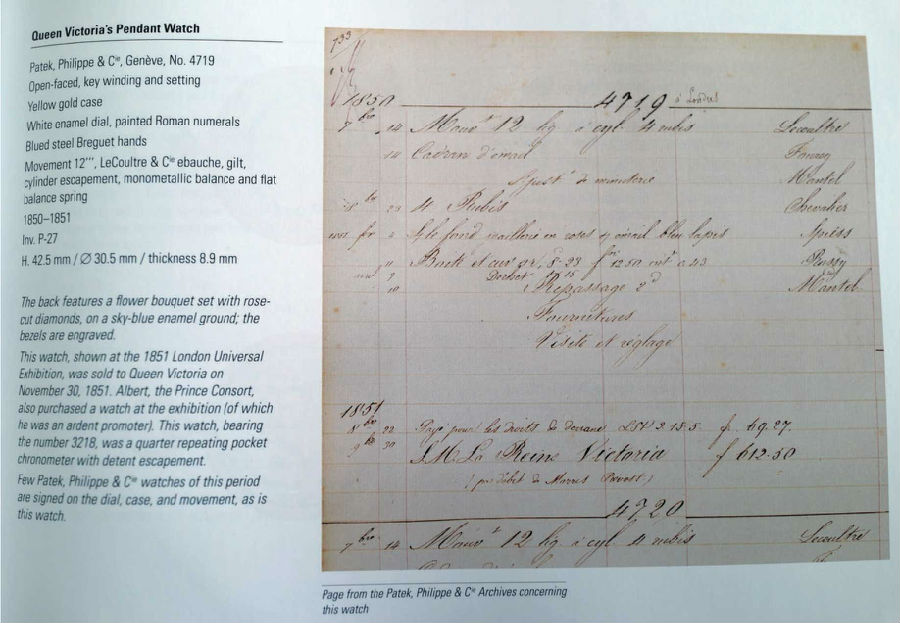 Queen Victoria's Pendant Watch
Patek, Philippe & Cie, Genève, No. 4719
Open-faced, key winding and setting
Yellow gold case
White enamel dial, painted Roman numerals
Blued steel Breguet hands
Movement 12''', LeCoultre & Cie ebauche, gilt,
cylinder escapement, monometallic balance and flat
balance spring
1850–1851
Inv. P-27
H. 42.5 mm / Ø 30.5 mm / thickness 8.9 mm
The back features a flower bouquet set with rose-
cut diamonds, on a sky-blue enamel ground; the
bezels are engraved.
This watch, shown at the 1851 London Universal
Exhibition, was sold to Queen Victoria on
November 30, 1851. Albert, the Prince Consort,
also purchased a watch at the exhibition (of which
he was an ardent promoter). This watch, bearing
the number 3218, was a quarter repeating pocket
chronometer with detent escapement.
Few Patek, Philippe & Cie watches of this period
are signed on the dial, case, and movement, as is
this watch.
733
1850 4719 à Londres
7bre 14 Mouvt 12 lig à cyl. 4 rubis Lecoultre
14 Cadran d'émail
Ajustt de minuterie Mantel
8bre 23 4 Rubis Chevalier
émail bleu
Repassage 2d Mantel
Fournitures
Visite et réglage
1851
8bre 22 Payé pour les droits de douane LSt 2.15.5 f. 69.27.
9bre 30 S.M. La Reine Victoria f 612.50
4720
7bre 14 Mouvt 12 lig à cyl 4 rubis Lecoultre
Page from the Patek, Philippe & Cie Archives concerning
this watch